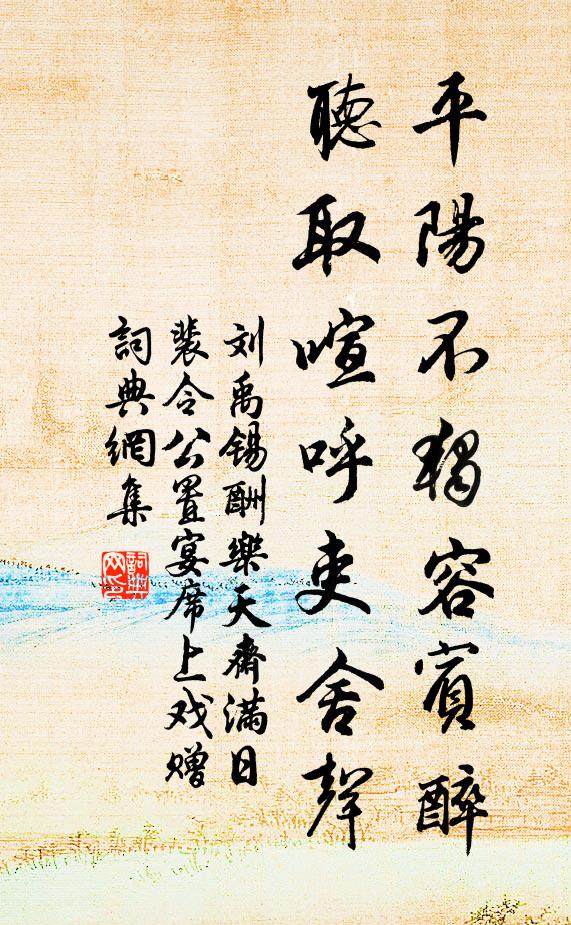 平陽不獨容賓醉
聽取喧呼吏舍聲
刘禹锡酬樂天齋滿日
裴令公置宴席上戏赠
詞典網集